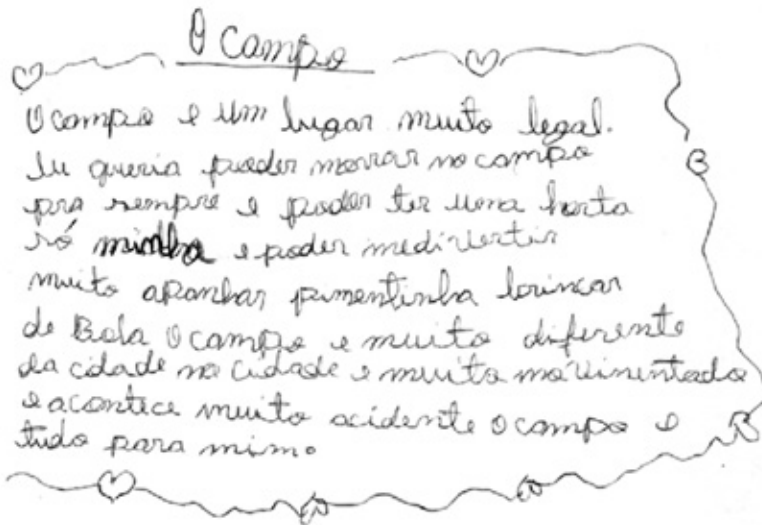 O campo
O campo e um lugar muito legal.
Eu queria poder morrar no campo
pra sempre e poder ter uma horta
só minha e poder medivertir
muito apanhar pimentinha brincar
de Bola O campo e muito diferente
da cidade na cidade e muito movimentado
e acontece muito acidente o campo e
tudo para mim.